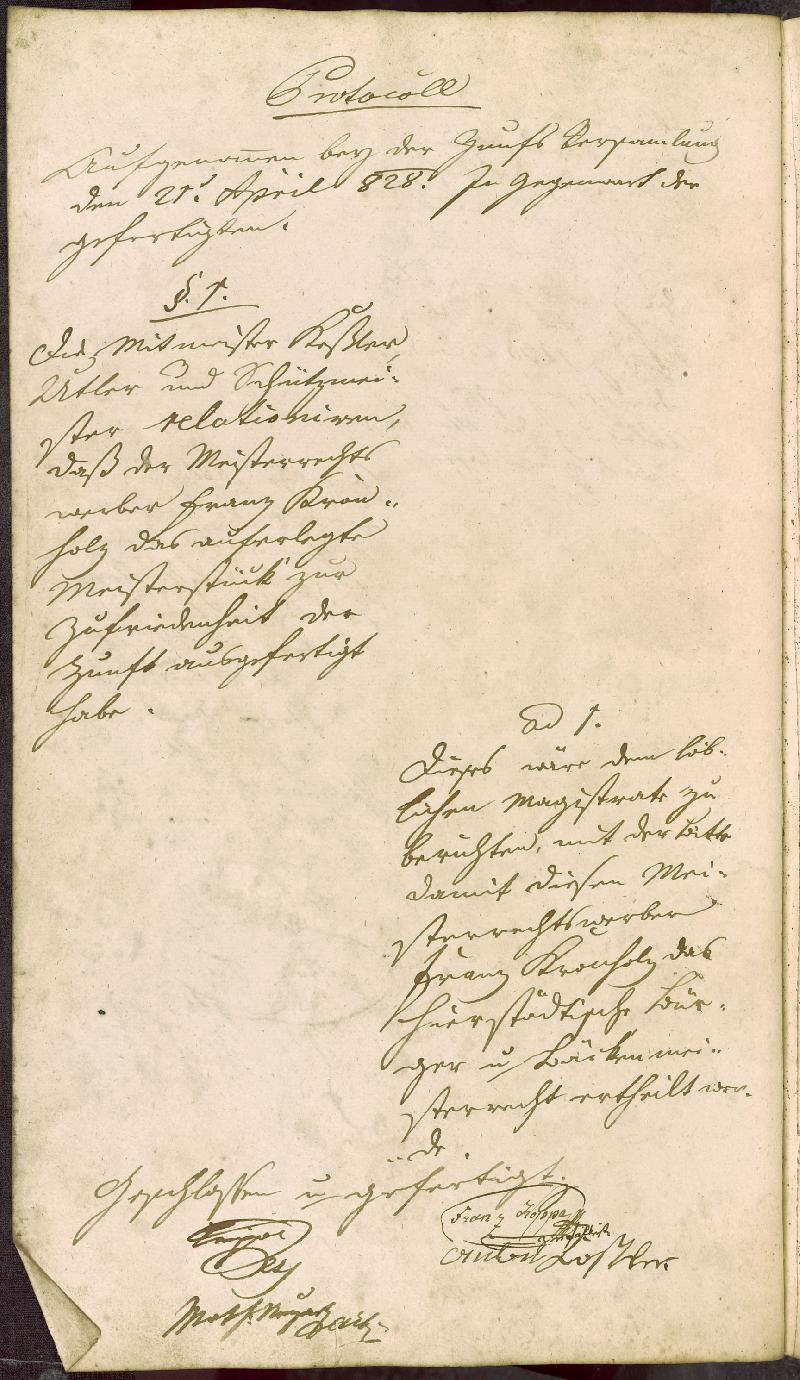 Protocoll
Aufgenom̄en bey der Zunfts Versamlung
den 21t. April 828. In Gegenwart der
gefertigten.
§. 1.
Die Mitmeister Keßler,
Utler und Schützmei-
ster relationiren,
daß der Meisterrechts
werber Franz Kron-
holz das auferlegte
Meisterstück zur
Zufriedenheit der
Zunft ausgefertigt
habe.
ad 1.
Dieses wäre dem löb-
lichen Magistrate zu
berichten, mit der Bitte
damit diesen Mei-
sterrechtswerber
Franz Kronholz das
hierstädtische Bür-
ger u Bäckenmei-
sterrecht ertheilt wer-
de
Geschlossen u gefertigt.
Franz
Anton
Math.